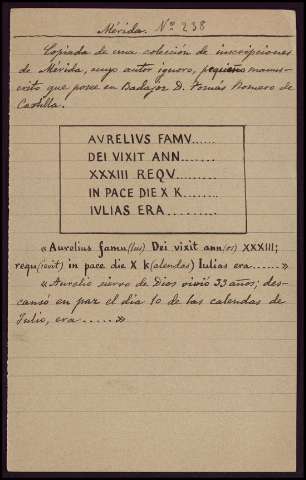 Mérida. Nº 238
Copiada de una colección de inscripciones
de Mérida, cuyo autor ignoro, pequeño manus-
crito que posee en Badajoz D. Tomás Romero de
Castilla.
AVRELIVS FAMV......
DEI VIXIT ANN.......
XXXIII REQV.......
IN PACE DIE X K.......
IVLIAS ERA .........
«Aurelius famu(lus) Dei vixit ann(os) XXXIII;
requ(ievit) in pace die X k(alendas) Iulias era......»
«Aurelio siervo de Dios vivió 33 años; des-
cansó en paz el día 10 de las calendas de
Julio, era .....»